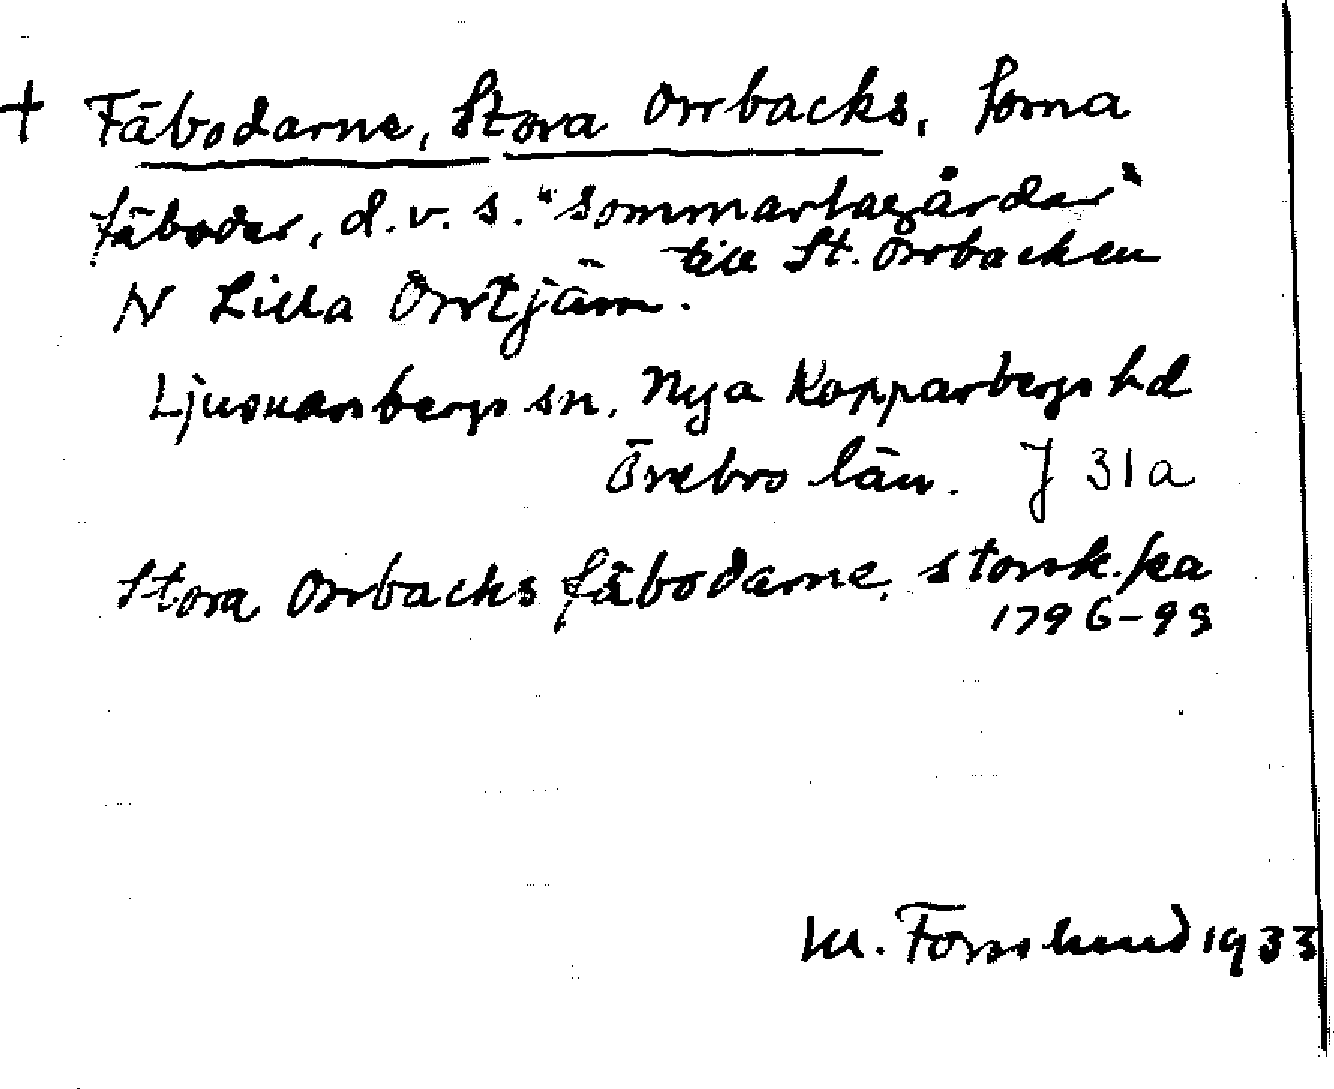 + Fäbodarne, Stora Orrbacks, forna
fäboder, d.v.s. "sommarlagårdar"
till St. Orrbacken
N Lilla Orrtjärn.
Ljusnarsbergs sn, Nya Kopparbergs hd
Örebro län. J 31a
Stora Orrbacks fäbodarne, storsk.ka
1796-99
M. Forslund 1933